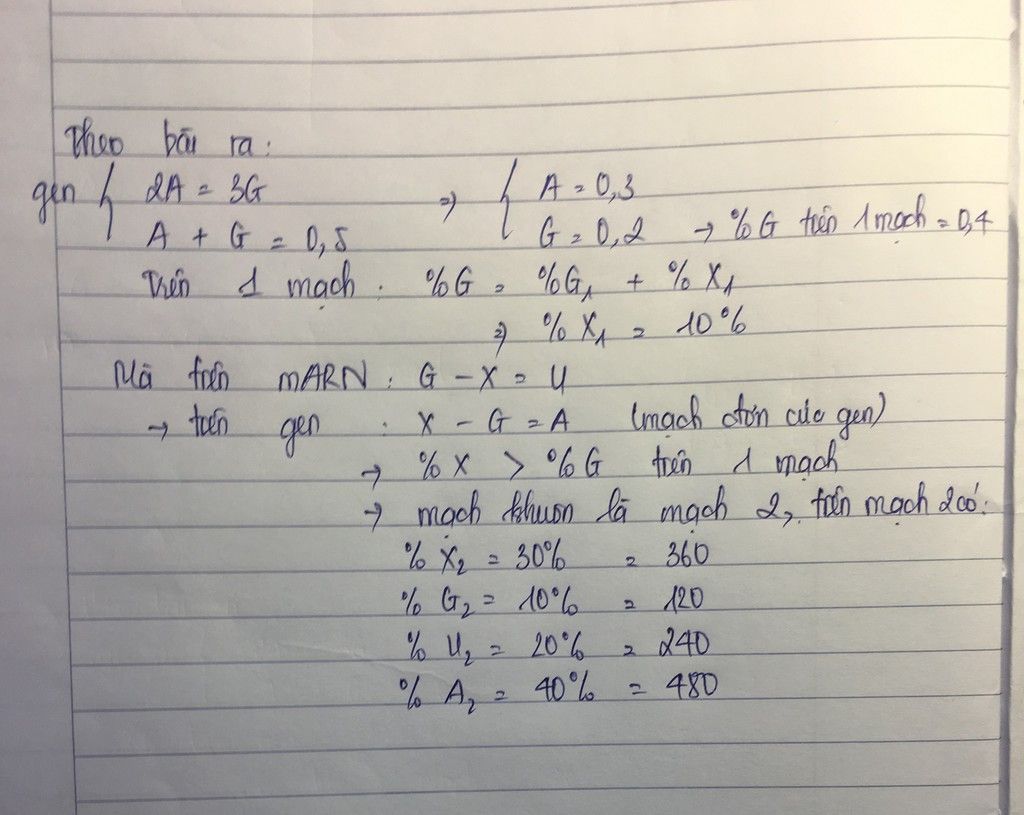 Theo bài ra:
gen { 2A = 3G => { A = 0,3
A + G = 0,5 G = 0,2 → %G trên 1 mạch = 0,4
Trên 1 mạch: %G = %G₁ + %X₁
=> %X₁ = 10%
Mà trên mARN: G - X = U
→ trên gen : X - G = A (mạch đơn của gen)
→ %X > %G trên 1 mạch
→ mạch khuôn là mạch 2, trên mạch 2 có:
% X₂ = 30% = 360
% G₂ = 10% = 120
% U₂ = 20% = 240
% A₂ = 40% = 480